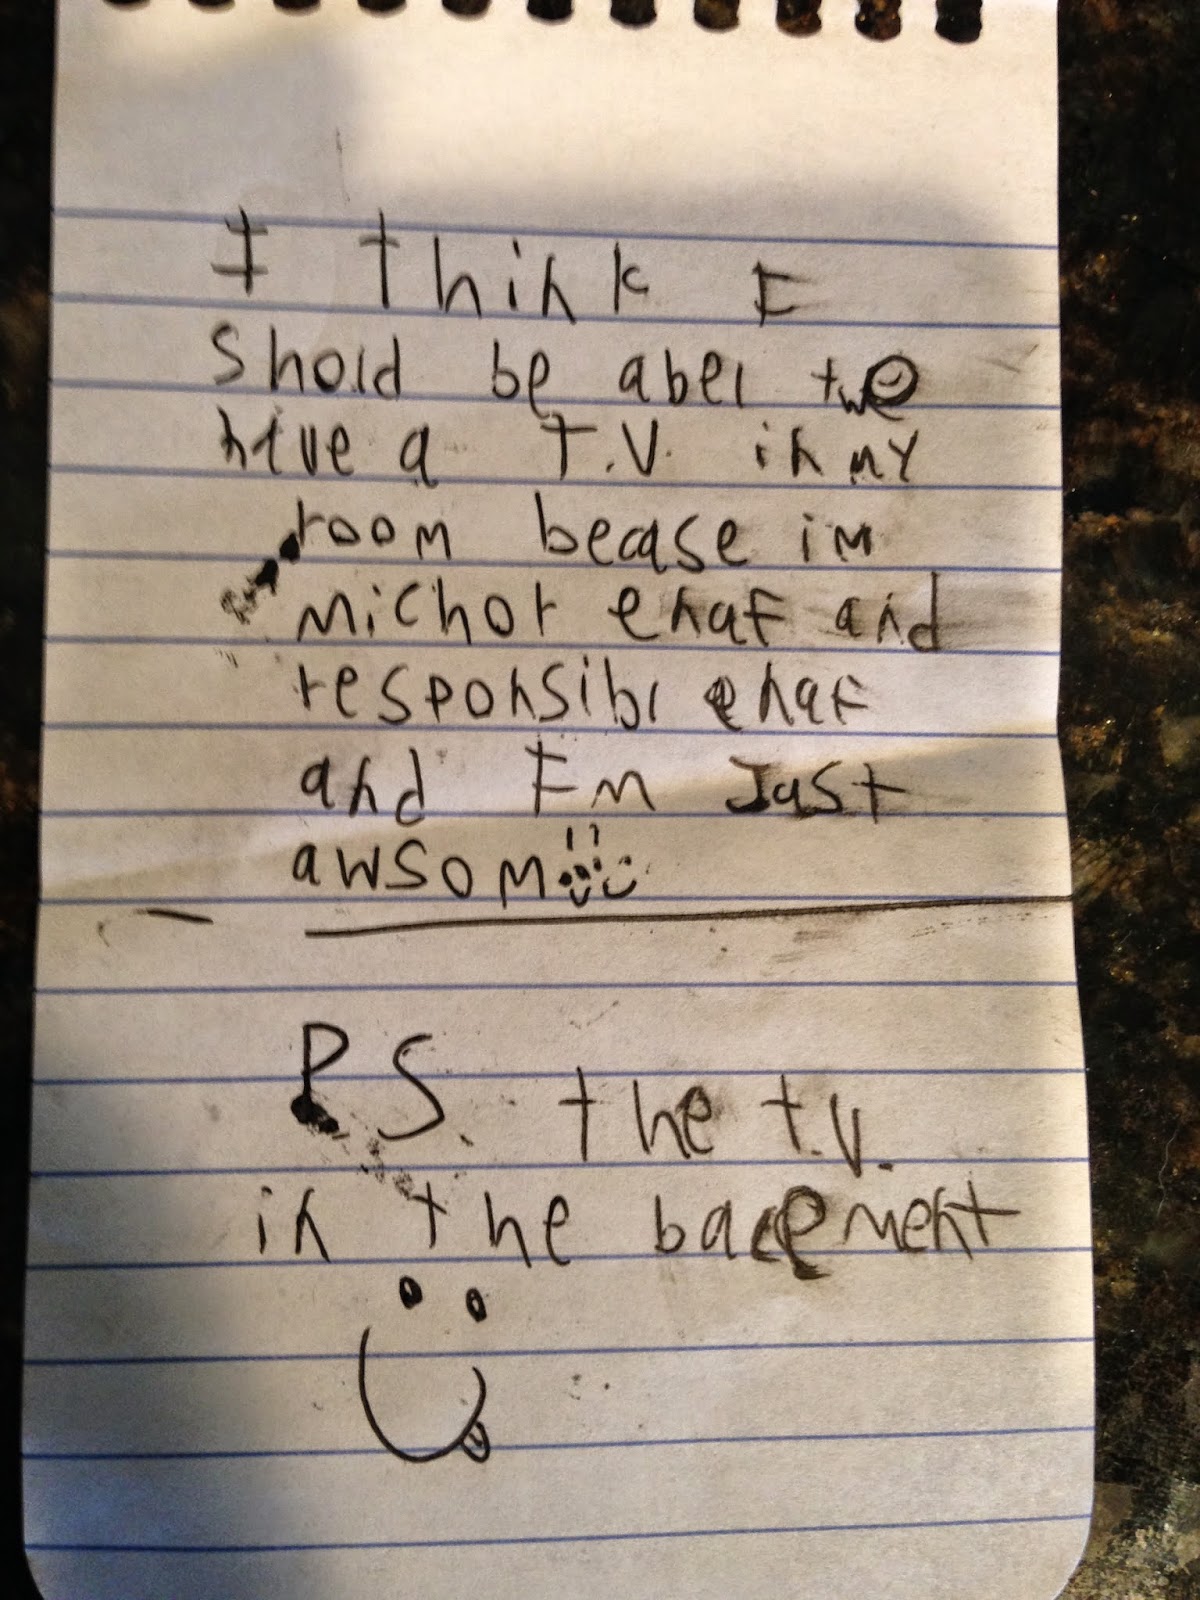 I think I
shold be abel two
have a T.V. in my
room becase im
michor enaf and
responsibl enaf
and I'm Just
awsom
P.S. the t.v.
in the bacement